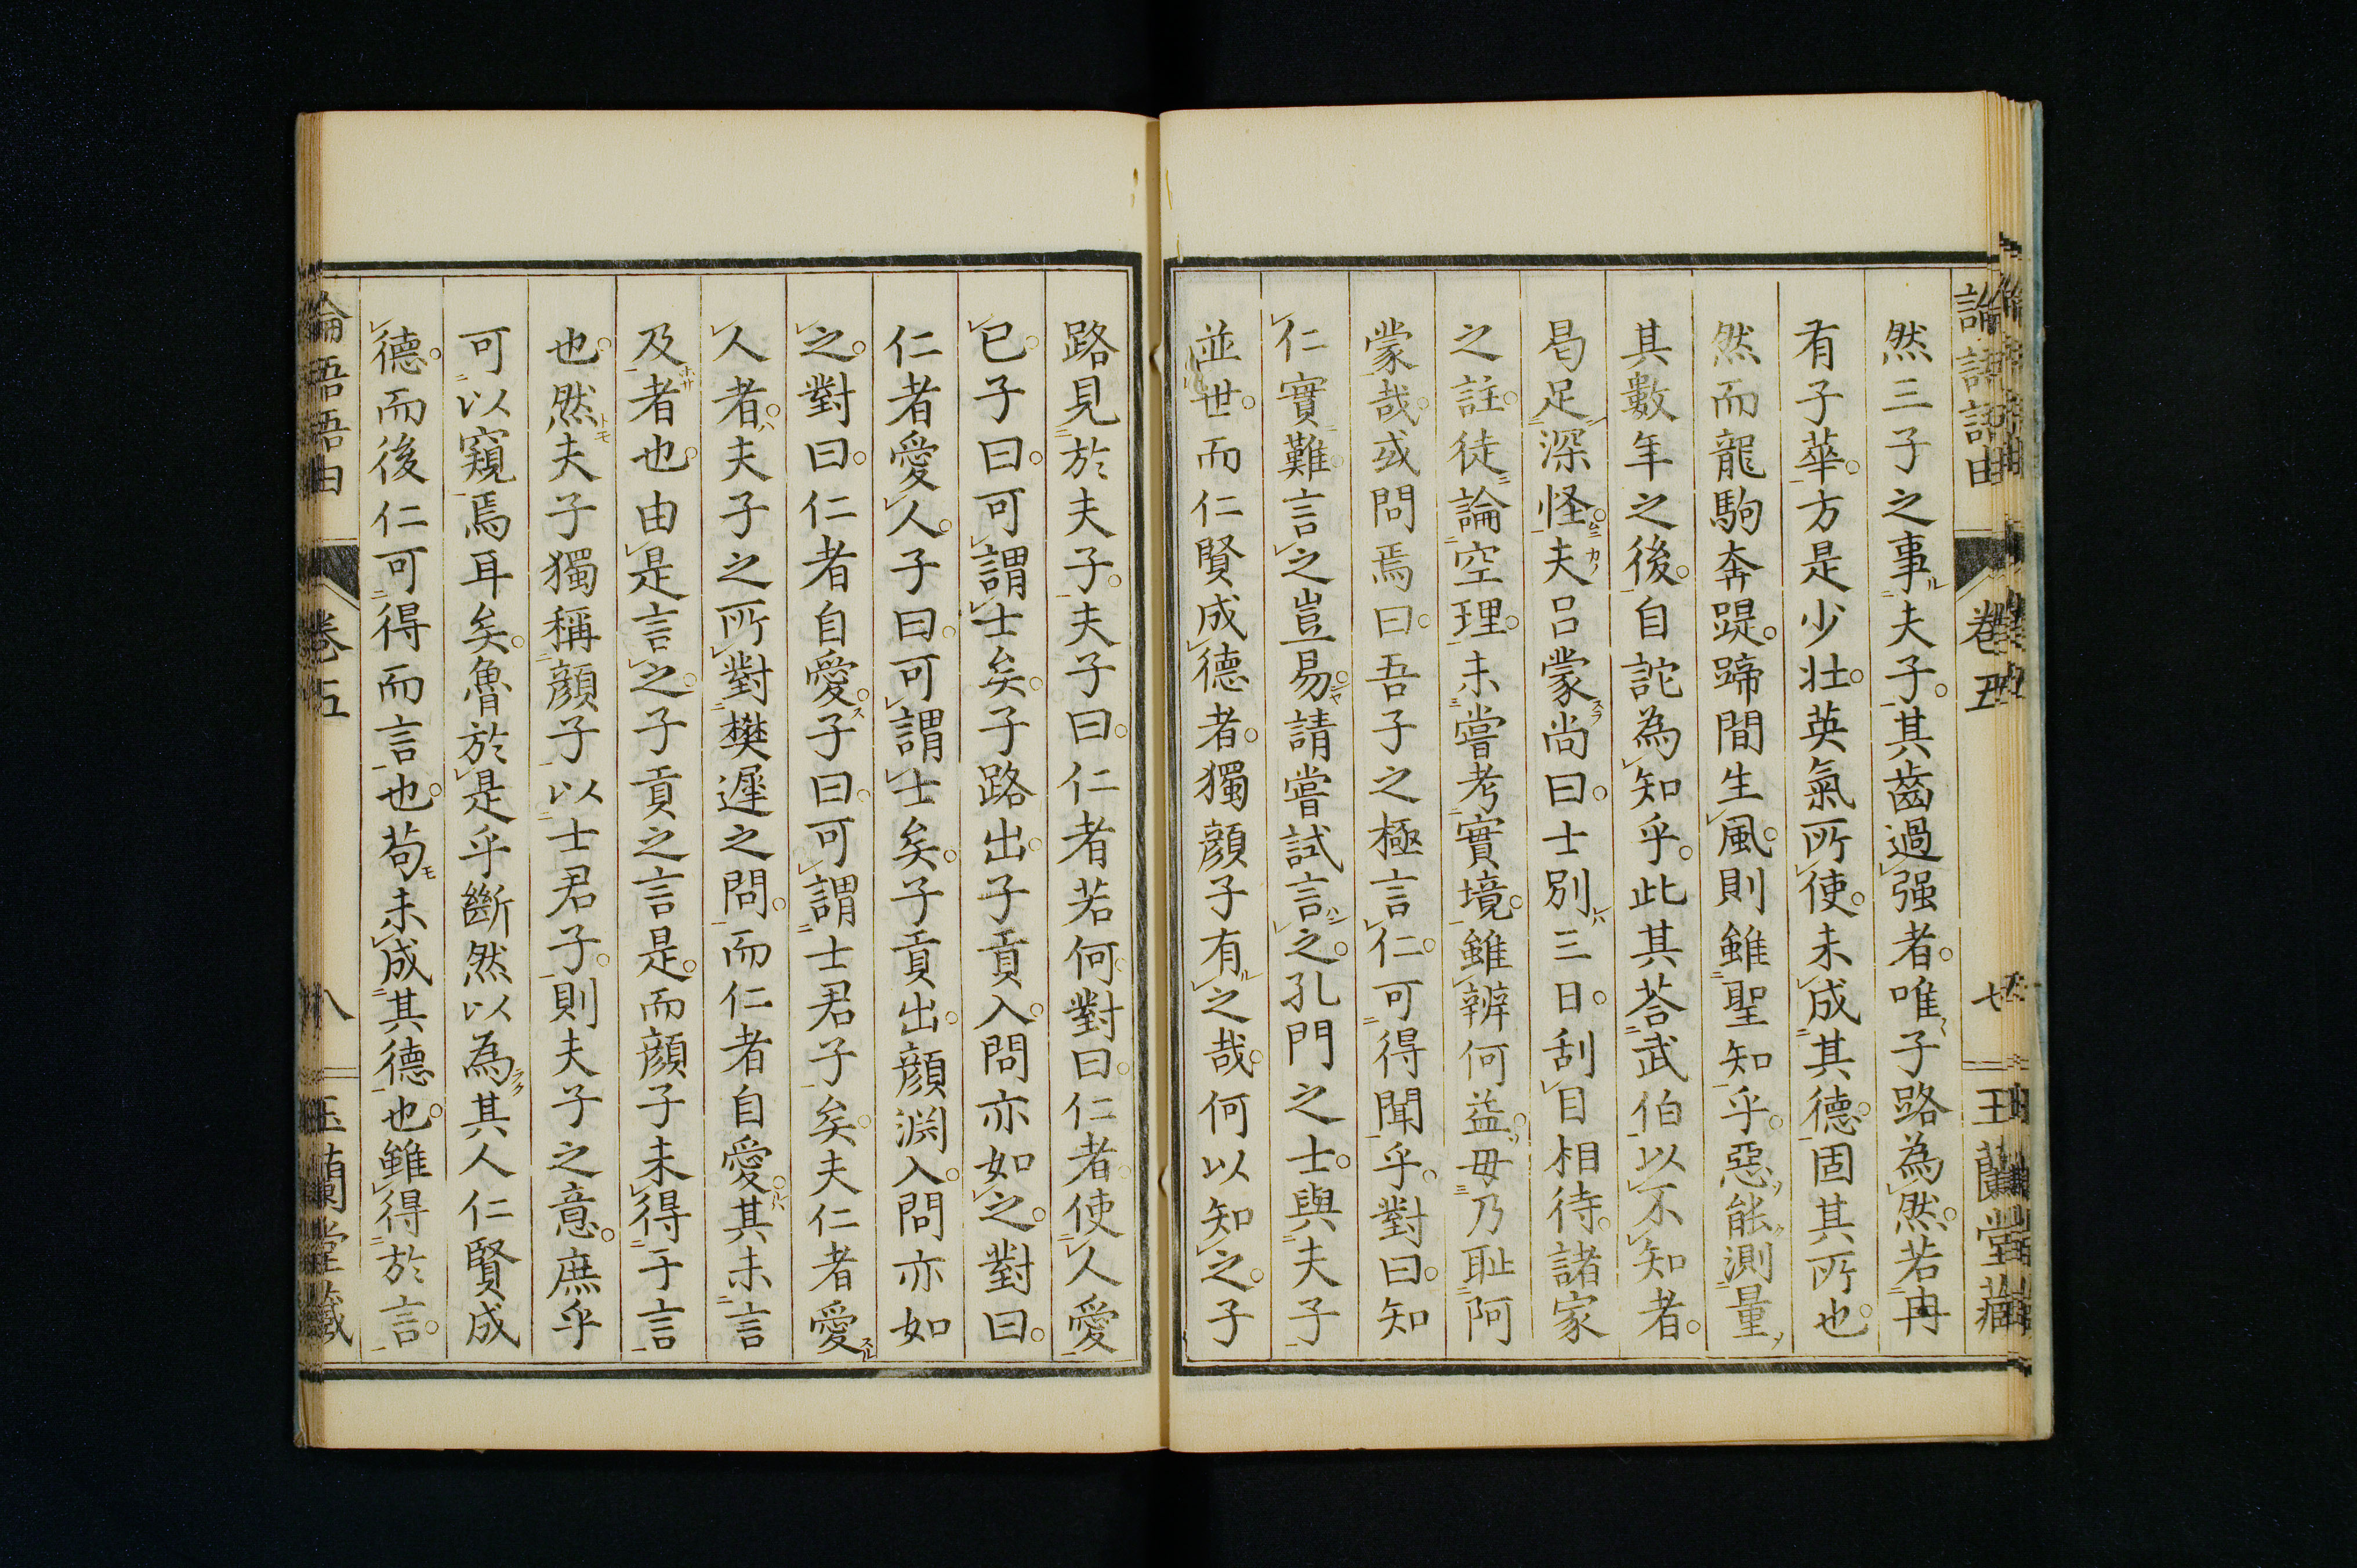 論語語由 卷五 七 玉蘭堂藏
然三子之事夫子其齒過强者唯子路為然若冉
有子華方是少壯英氣所使未成其德固其所也
然而龍駒奔踶蹄間生風則雖聖知乎惡能測量
其數年之後自詑為知乎此其荅武伯以不知者
曷足深怪夫呂蒙尚曰士別三日刮目相待諸家
之註徒論空理未嘗考實境雖辨何益毋乃耻阿
蒙哉或問焉曰吾子之極言仁可得聞乎對曰知
仁實難言之豈易請嘗試言之孔門之士與夫子
並世而仁賢成德者獨顔子有之哉何以知之子
路見於夫子夫子曰仁者若何對曰仁者使人愛
已子曰可謂士矣子路出子貢入問亦如之對曰
仁者愛人子曰可謂士矣子貢出顔淵入問亦如
之對曰仁者自愛子曰可謂士君子矣夫仁者愛
人者夫子之所對樊遲之問而仁者自愛其未言
及者也由是言之子貢之言是而顔子未得于言
也然夫子獨稱顔子以士君子則夫子之意庶乎
可以窺焉耳矣魯於是乎斷然以為其人仁賢成
德而後仁可得而言也苟未成其德也雖得於言
論語語由 卷五 八 玉蘭堂藏